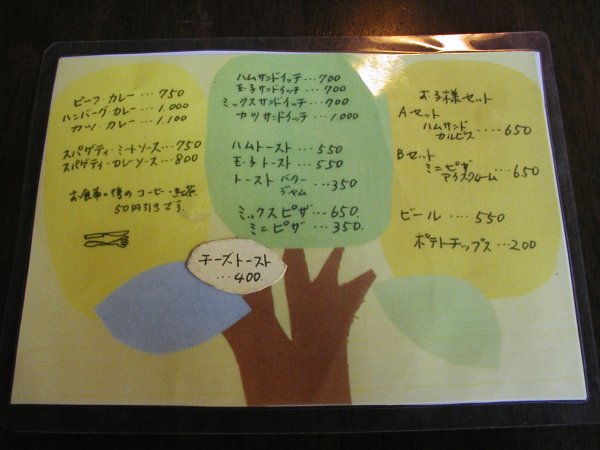 ビーフ・カレー…750
ハンバーグ・カレー…1.000
カツ・カレー…1.100
スパゲティ・ミートソース…750
スパゲティ・カレーソース…800
お食事の後のコーヒー・紅茶
50円引きです。
ハムサンドイッチ…700
玉子サンドイッチ…700
ミックスサンドイッチ…700
カツサンドイッチ…1.000
ハムトースト…550
玉子トースト…550
トースト バター ジャム…350
ミックスピザ…650.
ミニピザ…350.
チーズトースト
…400.
お子様セット
Aセット
ハムサンド
カルピス……650
Bセット
ミニピザ
アイスクリーム…650
ビール…550
ポテトチップス…200